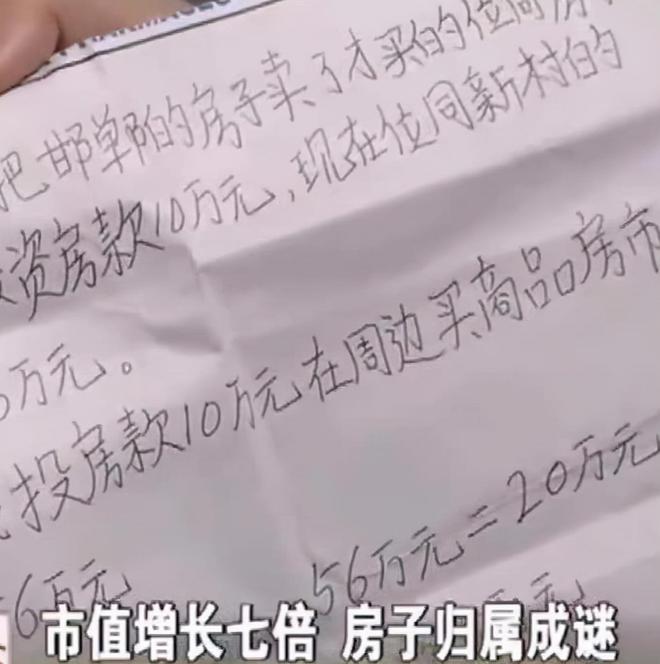 把邯郸的房子卖了才买的位同房
资房款10万元,现在位同新村的
万元。
投房款10万元在周边买商品房市
6万元 56万元=20万元
万元
市值增长七倍 房子归属成谜